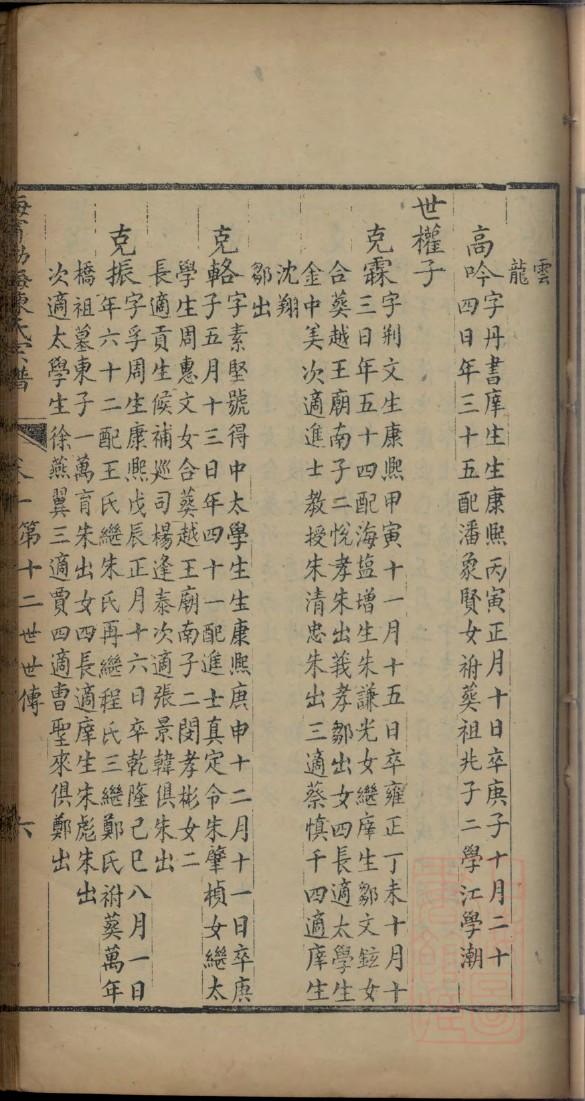 雲
龍
高吟
字丹書庠生生康熙丙寅正月十日卒庚子十月二十
四日年三十五配潘彖賢女祔葵祖兆子二學江學潮
世權子
克霖
字荆文生康熙甲寅十一月十五日卒雍正丁未十月十
三日年五十四配海塩增生朱謙光女繼庠生鄒文鉉女
合葵越王廟南子二悅孝朱出義孝鄒出女四長適太學生
金中美次適進士教授朱清忠朱出三適蔡慎千四適庠生
沈翔
鄒出
克輅
字素堅號得中太學生生康熙庚申十二月十一日卒庚
子五月十三日年四十一配進士真定令朱肇楨女繼太
學生周惠文女合葵越王廟南子二閔孝彬女二
長適貢生候補巡司楊逢泰次適張景韓俱朱出
克振
字孚周生康熙戊辰正月十六日卒乾隆己巳八月一日
年六十二配王氏繼朱氏再繼程氏三繼鄭氏祔葵萬年
橋祖墓東子一萬育朱出女四長適庠生宋彪朱出
次適太學生徐燕翼三適賈四適曹聖來俱鄭出
海寧渤海陳氏宗譜
第十二世世傳
六